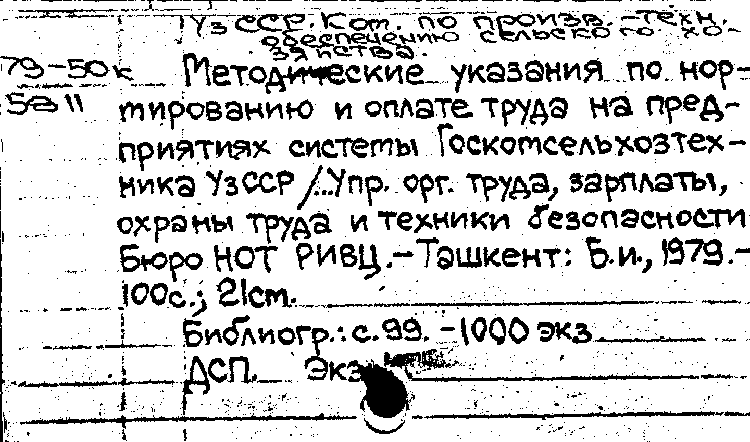 УзССР. Ком. по произв. -техн.
обеспечению сельского хо-
зяйства.
79-50к Методические указания по нор-
5а11 мированию и оплате труда на пред-
приятиях системы Госкомсельхозтех-
ника УзССР /...Упр. орг. труда, зарплаты,
охраны труда и техники безопасности
Бюро НОТ РИВЦ.-Ташкент: Б.и., 1979.-
100с.; 21см.
Библиогр.: с.99. -1000 экз
ДСП. Экз